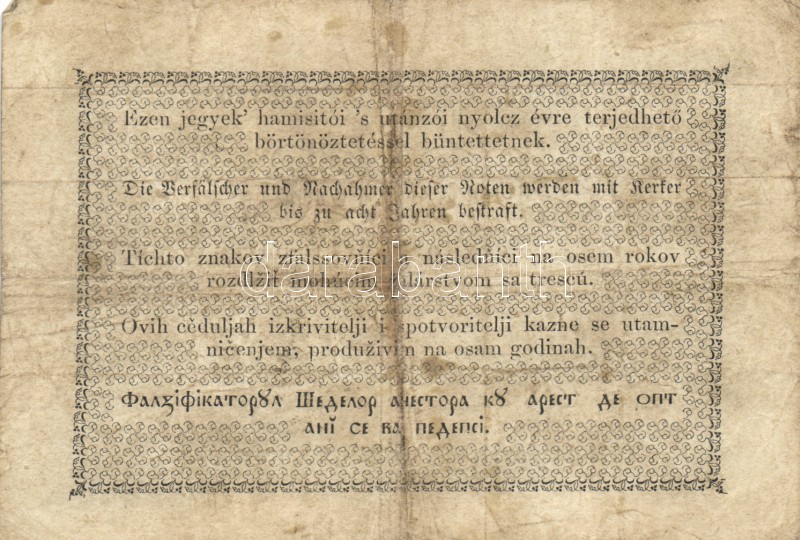 Ezen jegyek’ hamisitói ’s utánzói nyolcz évre terjedhető
börtönöztetéssel büntettetnek.
Die Verfälscher und Nachahmer dieser Noten werden mit Kerker
bis zu acht Jahren bestraft.
Tíchto znakov zfalssovňíci následňíci na osem rokov
rozdlžit mohúcm žalárstvom sa trescú.
Ovih cĕduljah izkrivitelji i spotvoritelji kazne se utam-
ničenjem, produživim na osam godinah.
Фалꙁіфікаторꙋл Шеделор ачестора кꙋ арест де опт
анĭ се ва педепсі.
darabanth